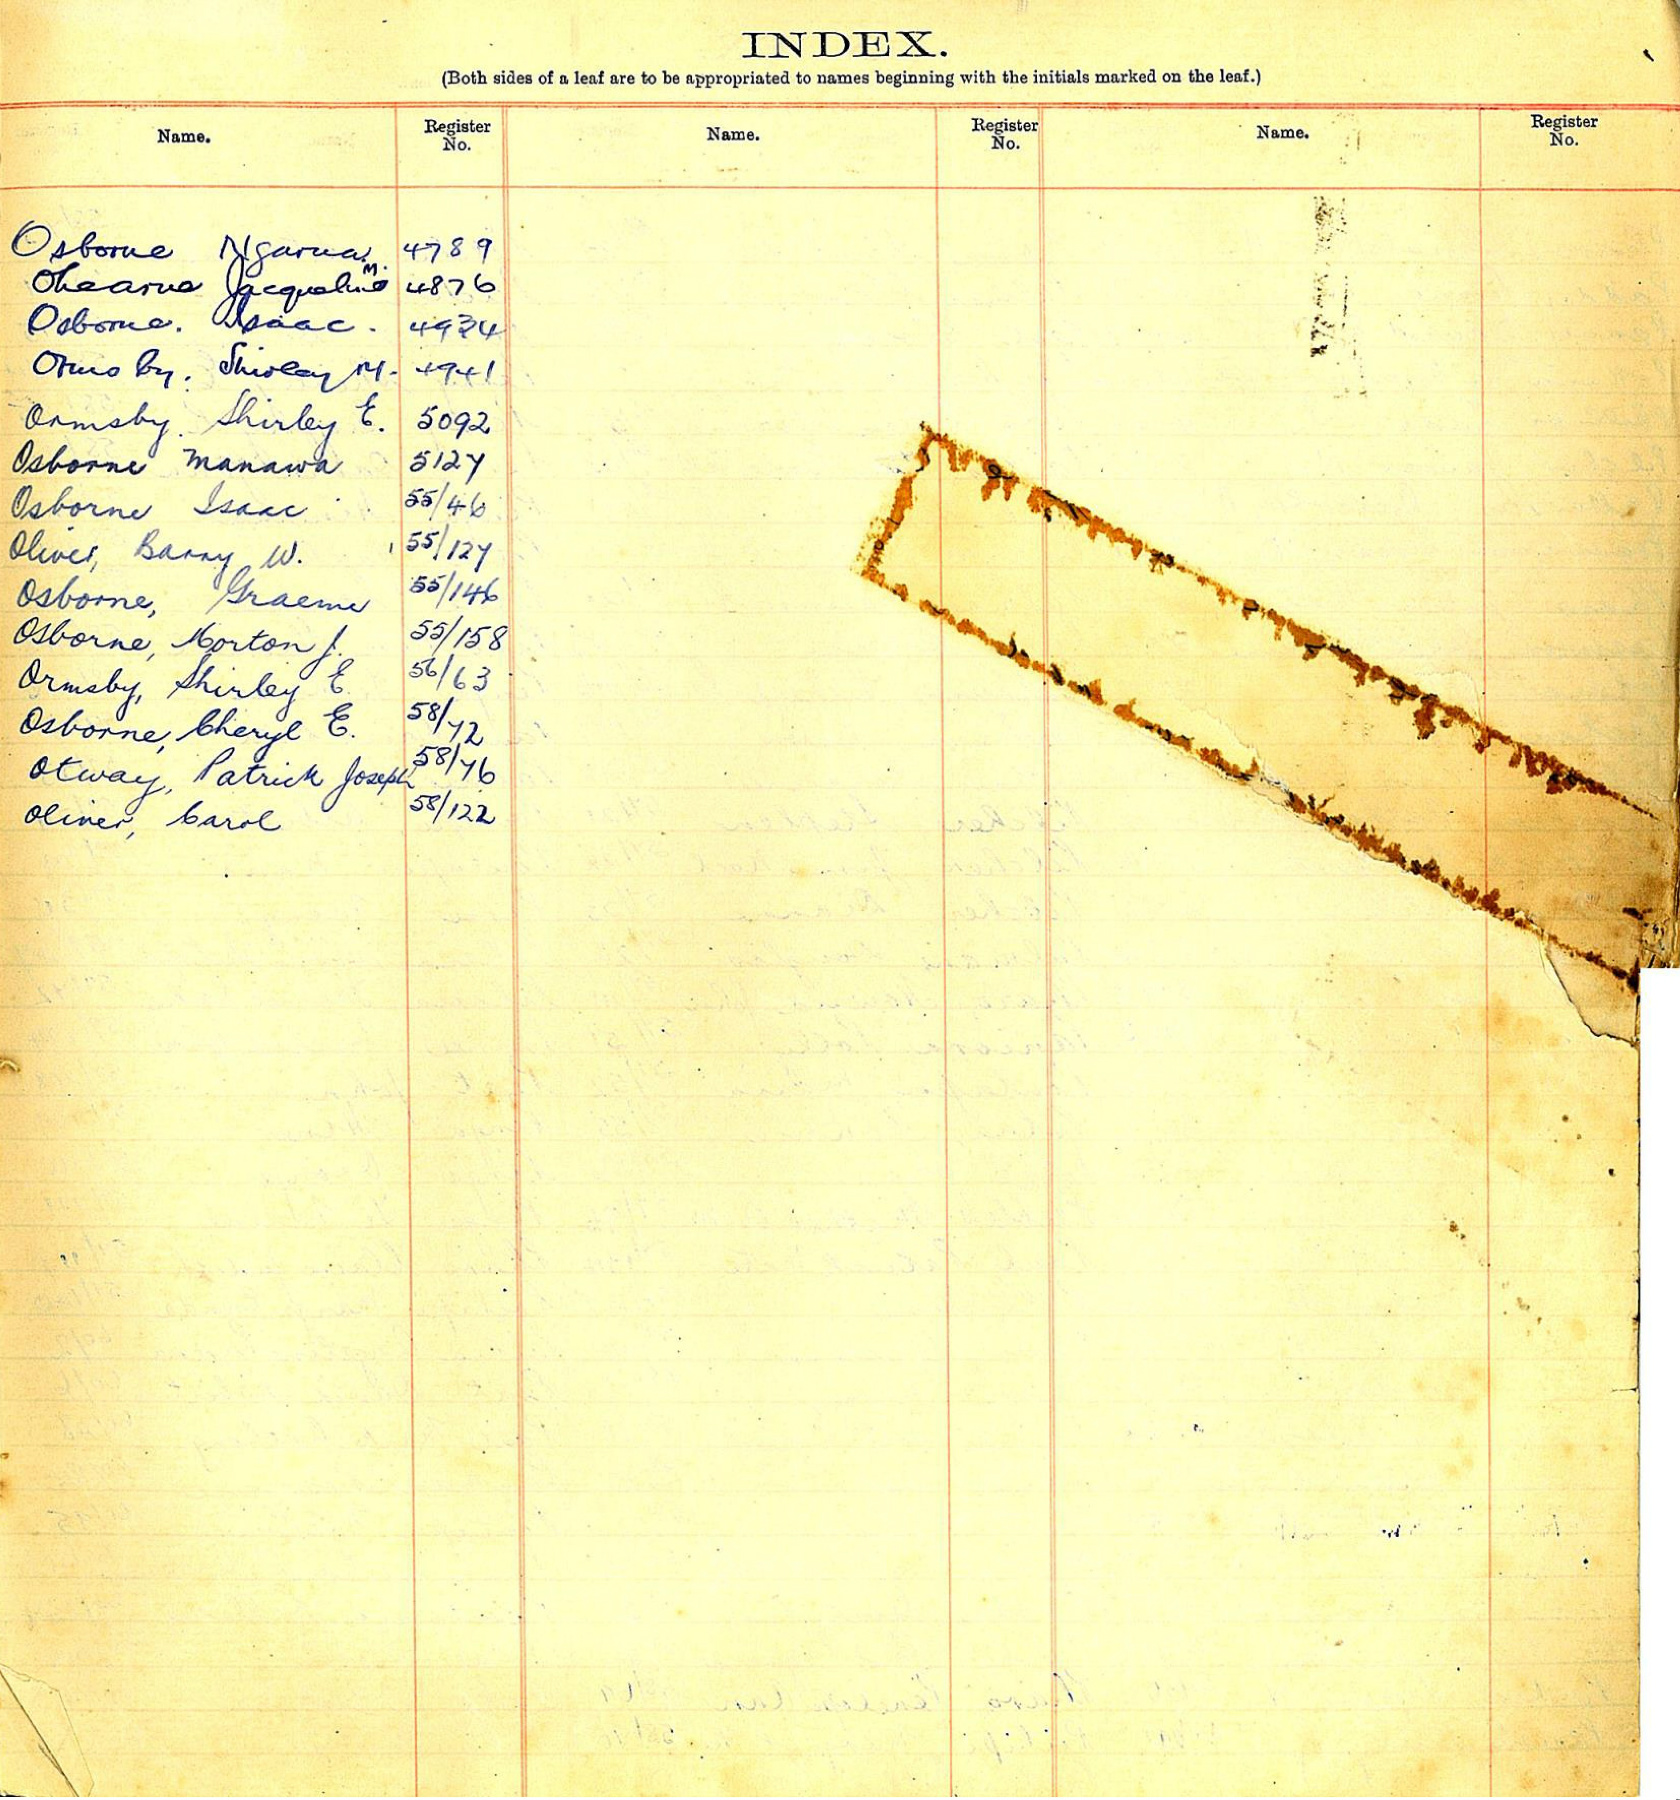 INDEX.
(Both sides of a leaf are to be appropriated to names beginning with the initials marked on the leaf.)
Name. Register No. Name. Register No. Name. Register No.
Osborne Ngarua 4789
Ohearne Jacqueline M. 4876
Osborne. Isaac. 4934
Ormsby. Shirley M. 4941
Ormsby. Shirley E. 5092
Osborne Manawa 5127
Osborne Isaac 55/46
Oliver, Barry W. 55/127
Osborne, Graeme 55/146
Osborne, Morton J. 55/158
Ormsby, Shirley E 56/63
Osborne, Cheryl E. 58/72
Otway, Patrick Joseph 58/76
Oliver, Carol 58/122